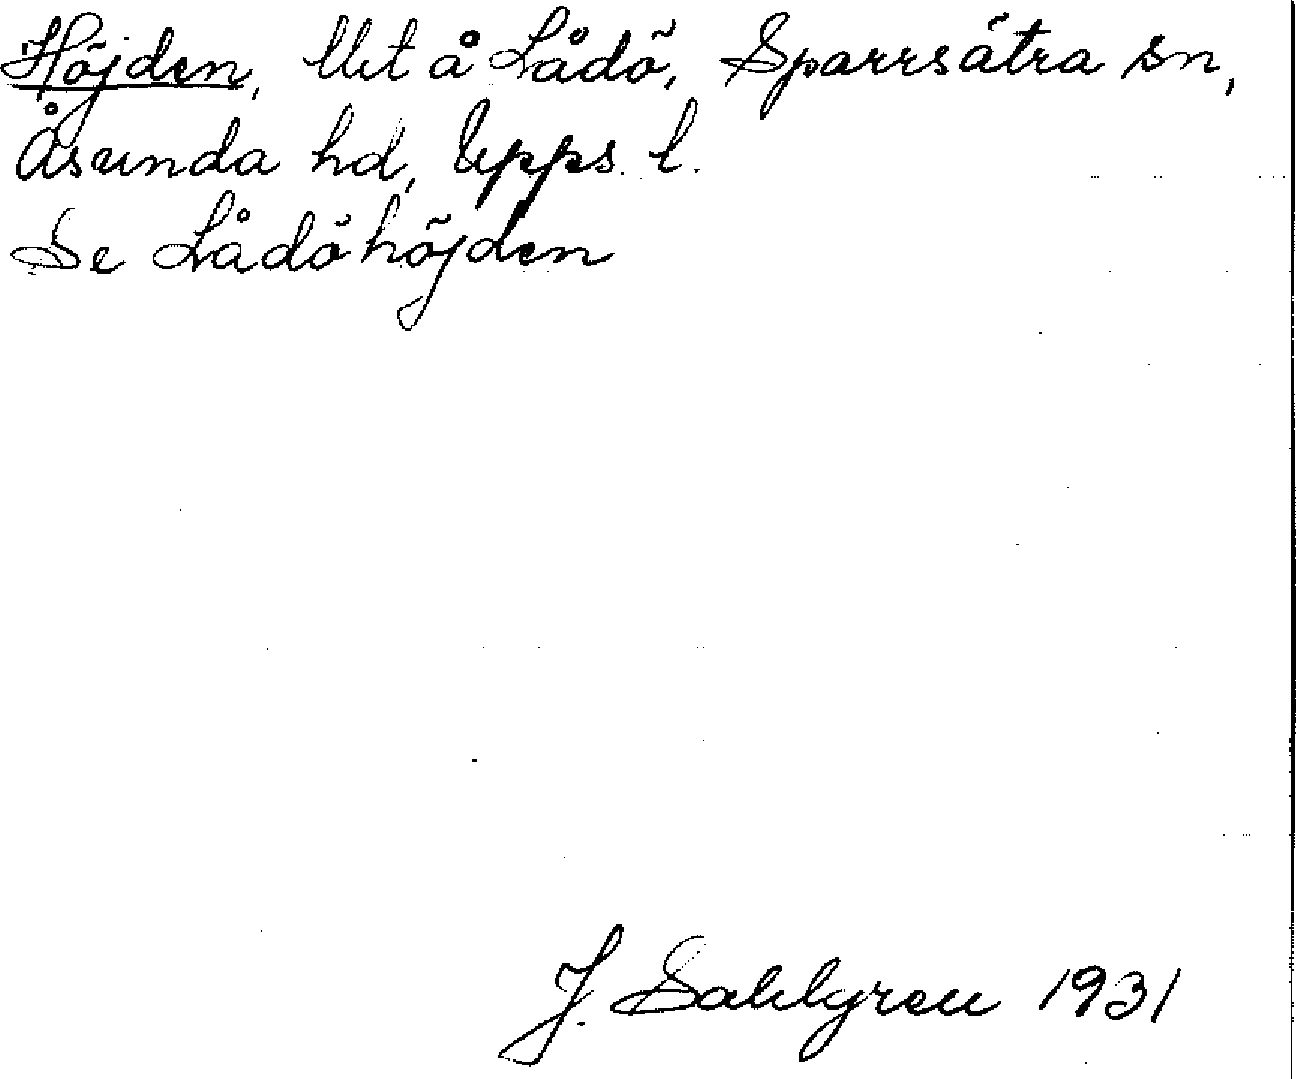 Höjden, llt å Lådö, Sparrsätra sn,
Åsunda hd, Upps. l.
Se Lådöhöjden
J. Sahlgren 1931